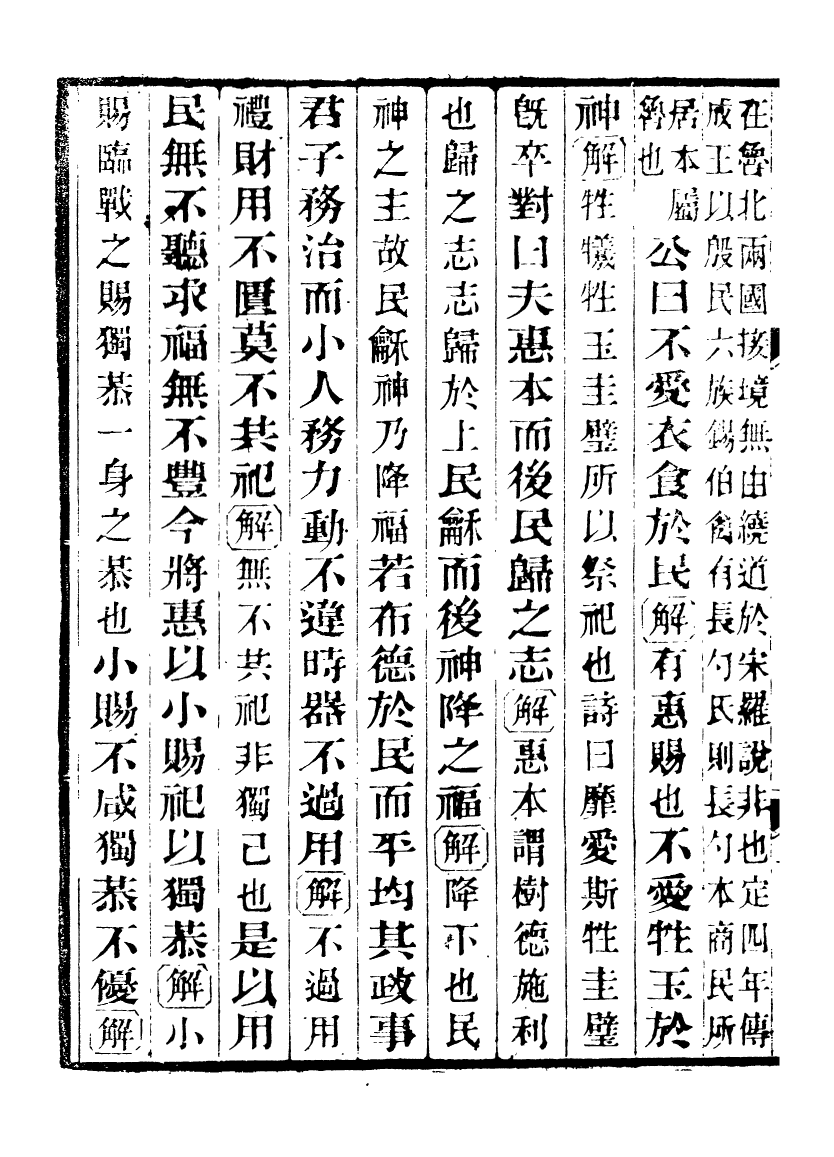 在魯北兩國接境無由繞道於宋羅說非也定四年傳
成王以殷民六族錫伯禽有長勺氏則長勺本商民所
居本屬
魯也
公曰不愛衣食於民解有惠賜也不愛牲玉於
神解牲犧牲玉圭璧所以祭祀也詩曰靡愛斯牲圭璧
旣卒對曰夫惠本而後民歸之志解惠本謂樹德施利
也歸之志志歸於上民龢而後神降之福解降下也民
神之主故民龢神乃降福若布德於民而平均其政事
君子務治而小人務力動不違時器不過用解不過用
禮財用不匱莫不共祀解無不共祀非獨己也是以用
民無不聽求福無不豐今將惠以小賜祀以獨恭解小
賜臨戰之賜獨恭一身之恭也小賜不咸獨恭不優解